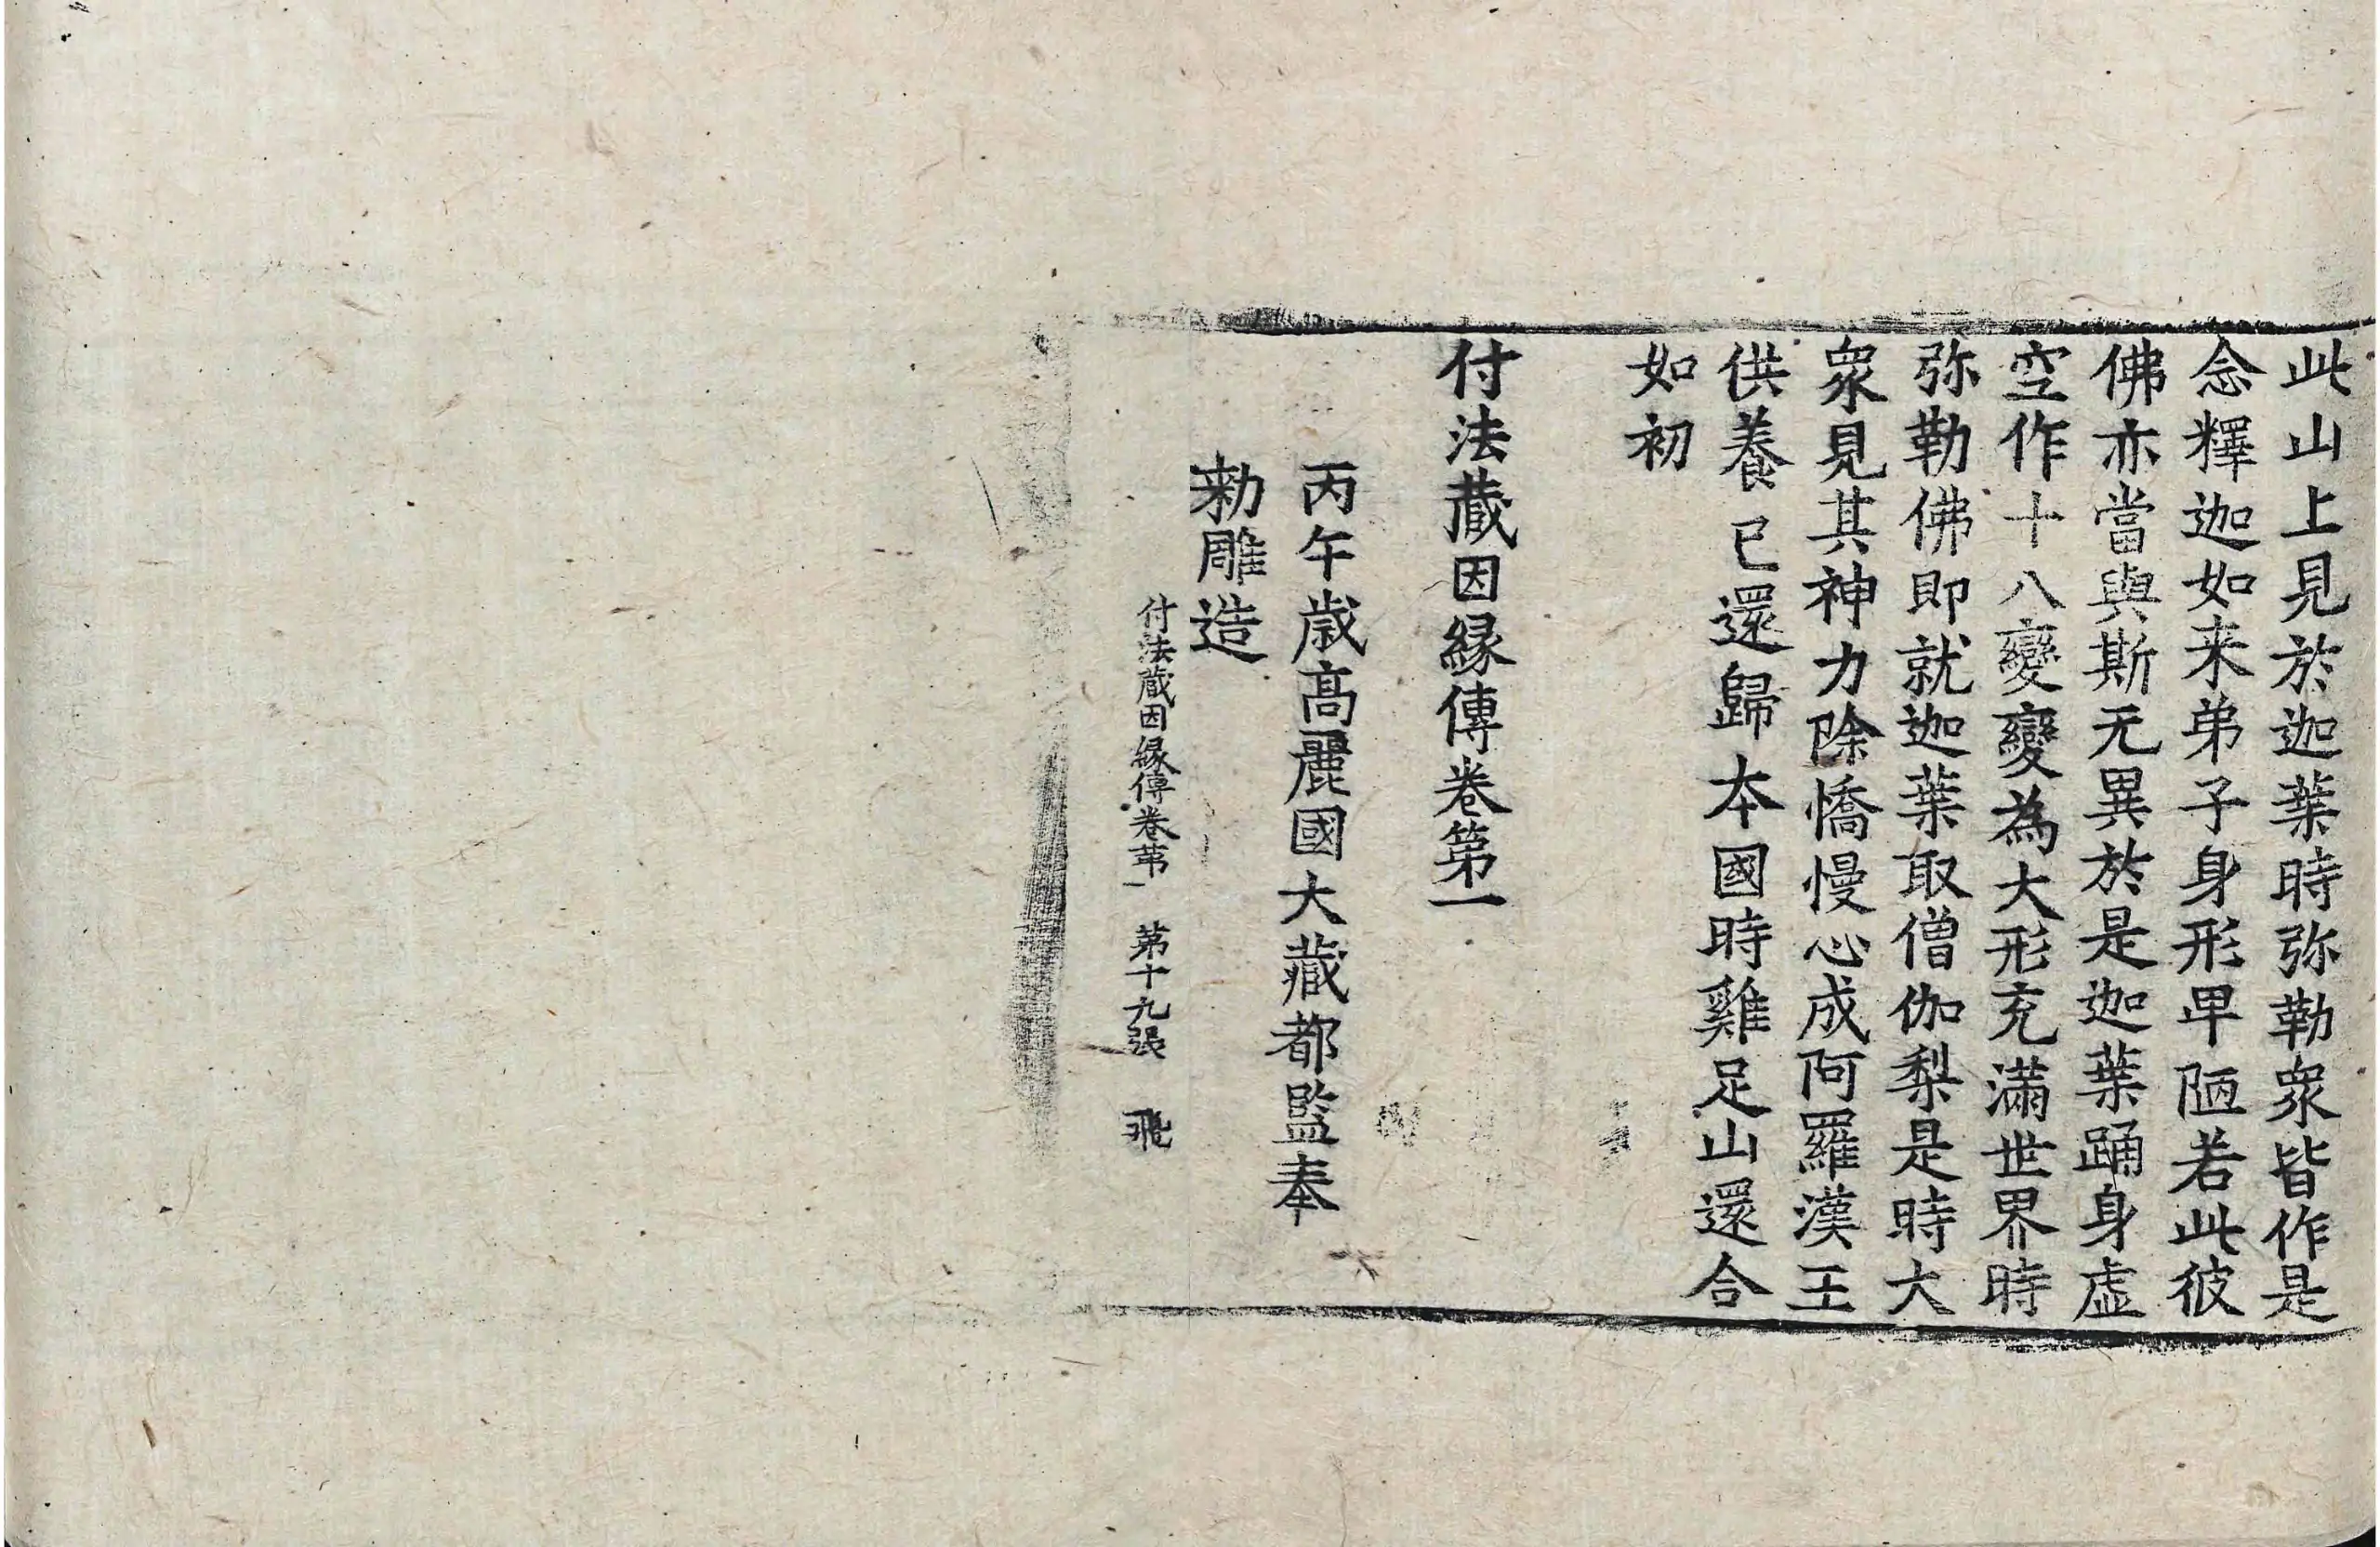 此山上見於迦葉時弥勒衆皆作是
念釋迦如来弟子身形卑陋若此彼
佛亦當與斯无異於是迦葉踊身虛
空作十八變變為大形充滿世界時
弥勒佛即就迦葉取僧伽梨是時大
衆見其神力除憍慢心成阿羅漢王
供養已還歸本國時雞足山還合
如初
付法藏因緣傳卷第一
丙午歲高麗國大藏都監奉
勑雕造
付法藏因緣傳卷苐一 苐十九張 飛